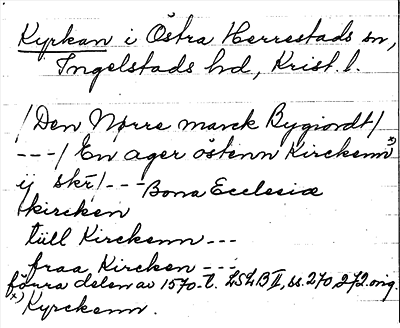 Kyrkan i Östra Herrestads sn,
Ingelstads hd, Krist. l.
/Den Nørre marck Bygiordt/
---/ En ager östenn Kirckenn x)
ij skr/---Bona Ecclesiæ
kircken
tüll Kirckenn ---
fraa Kircken ---
förra delen av 1570-t. LSLB II, ss. 270, 272. orig.
x) Kyrckenn.